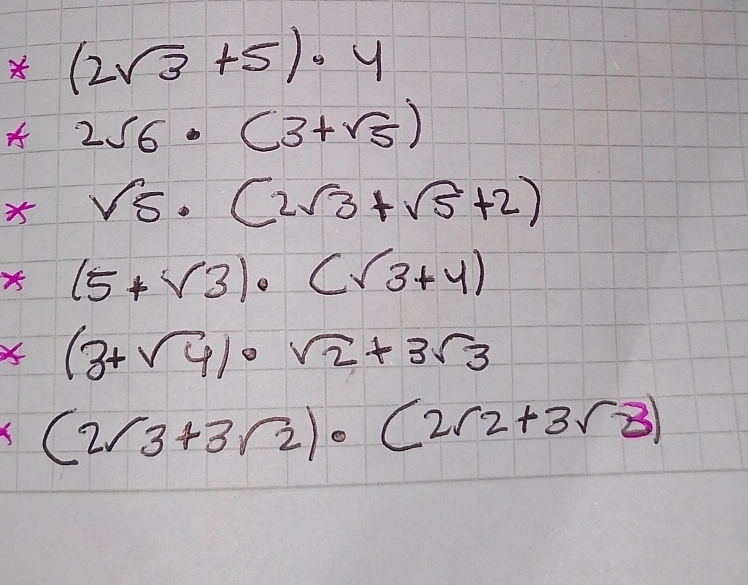 * (2√3 +5) · 4
* 2√6 · (3+√5)
* √5 · (2√3 + √5 +2)
* (5 + √3) · (√3+4)
* (3+√4) · √2 + 3√3
* (2√3+3√2) · (2√2+3√3)